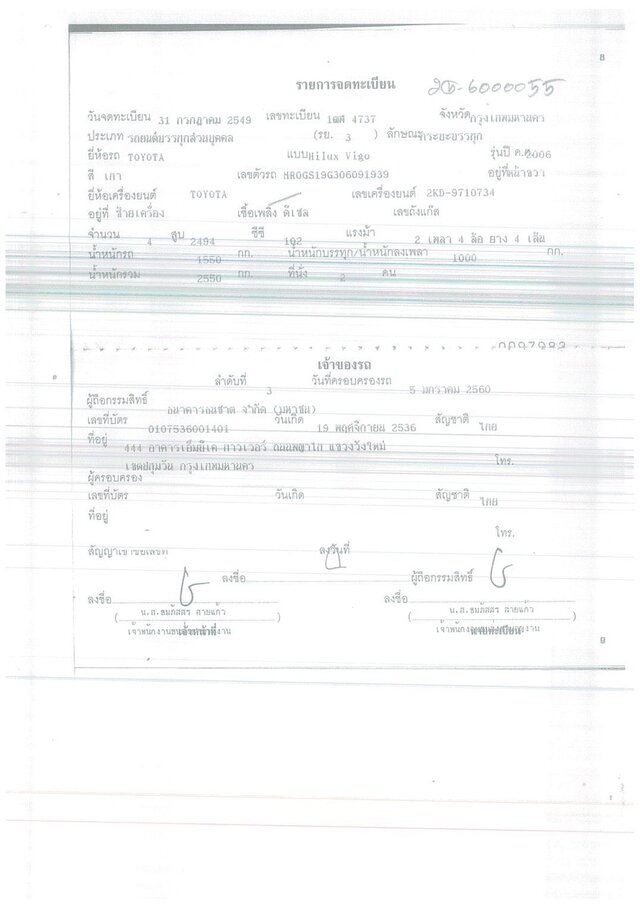 8
รายการจดทะเบียน 2ฒ-6000055
วันจดทะเบียน 31 กรกฎาคม 2549 เลขทะเบียน 4737 จังหวัด กรุงเทพมหานคร
ประเภท รถยนต์บรรทุกส่วนบุคคล (รย. 3 ) ลักษณะ กระบะบรรทุก
ยี่ห้อรถ TOYOTA แบบ Hilux Vigo รุ่นปี ค.ศ. 2006
สี เทา เลขตัวรถ MR0GS19G306091939 อยู่ที่ หน้าขวา
ยี่ห้อเครื่องยนต์ TOYOTA เลขเครื่องยนต์ 2KD-9710734
อยู่ที่ ซ้ายเครื่อง เชื้อเพลิง ดีเซล เลขถังแก๊ส
จำนวน 4 สูบ 2494 ซีซี 102 แรงม้า 2 เพลา 4 ล้อ ยาง 4 เส้น
น้ำหนักรถ 1550 กก. น้ำหนักบรรทุก/น้ำหนักลงเพลา 1000 กก.
น้ำหนักรวม 2550 กก. ที่นั่ง 2 คน
เจ้าของรถ
ลำดับที่ 3 วันที่ครอบครองรถ 5 มกราคม 2560
ผู้ถือกรรมสิทธิ์ ธนาคารธนชาต จำกัด (มหาชน)
เลขที่บัตร 0107536001401 วันเกิด 19 พฤศจิกายน 2536 สัญชาติ ไทย
ที่อยู่ 444 อาคารเอ็มบีเค ทาวเวอร์ ถนนพญาไท แขวงวังใหม่
เขตปทุมวัน กรุงเทพมหานคร โทร.
ผู้ครอบครอง
เลขที่บัตร วันเกิด สัญชาติ ไทย
ที่อยู่
โทร.
สัญญาเช่าซื้อเลขที่ ลงวันที่
ลงชื่อ ผู้ถือกรรมสิทธิ์
ลงชื่อ ลงชื่อ
( น.ส.ชมภัสสร สายแก้ว ) ( น.ส.ชมภัสสร สายแก้ว )
เจ้าหน้าที่ นายทะเบียน
9